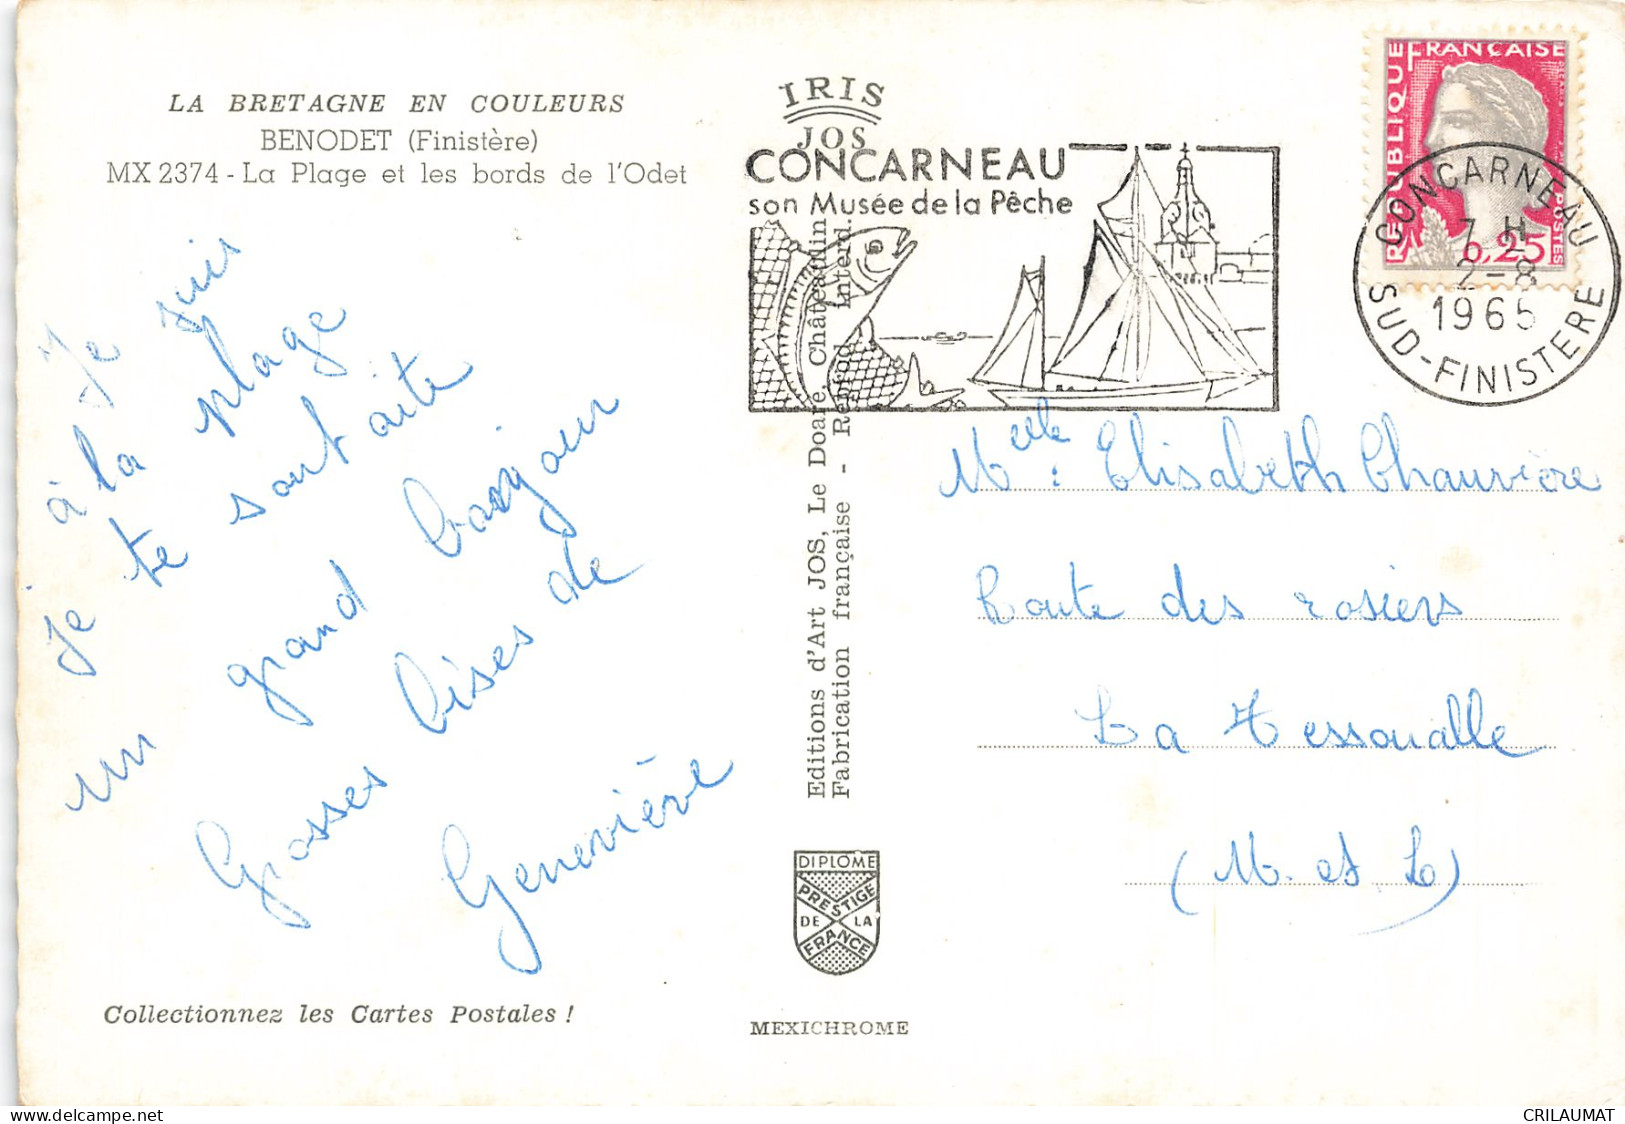 LA BRETAGNE EN COULEURS
BENODET (Finistère)
MX 2374 - La Plage et les bords de l'Odet
Je suis
à la plage
je te souhaite
un grand bonjour
Grosses bises de
Geneviève
Collectionnez les Cartes Postales !
IRIS
JOS
Editions d'Art JOS, Le Doaré, Châteaulin
Fabrication française - Reprod. interd.
DIPLOME
PRESTIGE
DE LA
FRANCE
MEXICHROME
CONCARNEAU
son Musée de la Pêche
REPUBLIQUE FRANÇAISE
POSTES
0,25
CONCARNEAU
7 H
2-8
1965
SUD-FINISTERE
Melle : Elisabeth Chauvière
Route des rosiers
La Tessoualle
(M. et L)
CRILAUMAT
delcampe.net